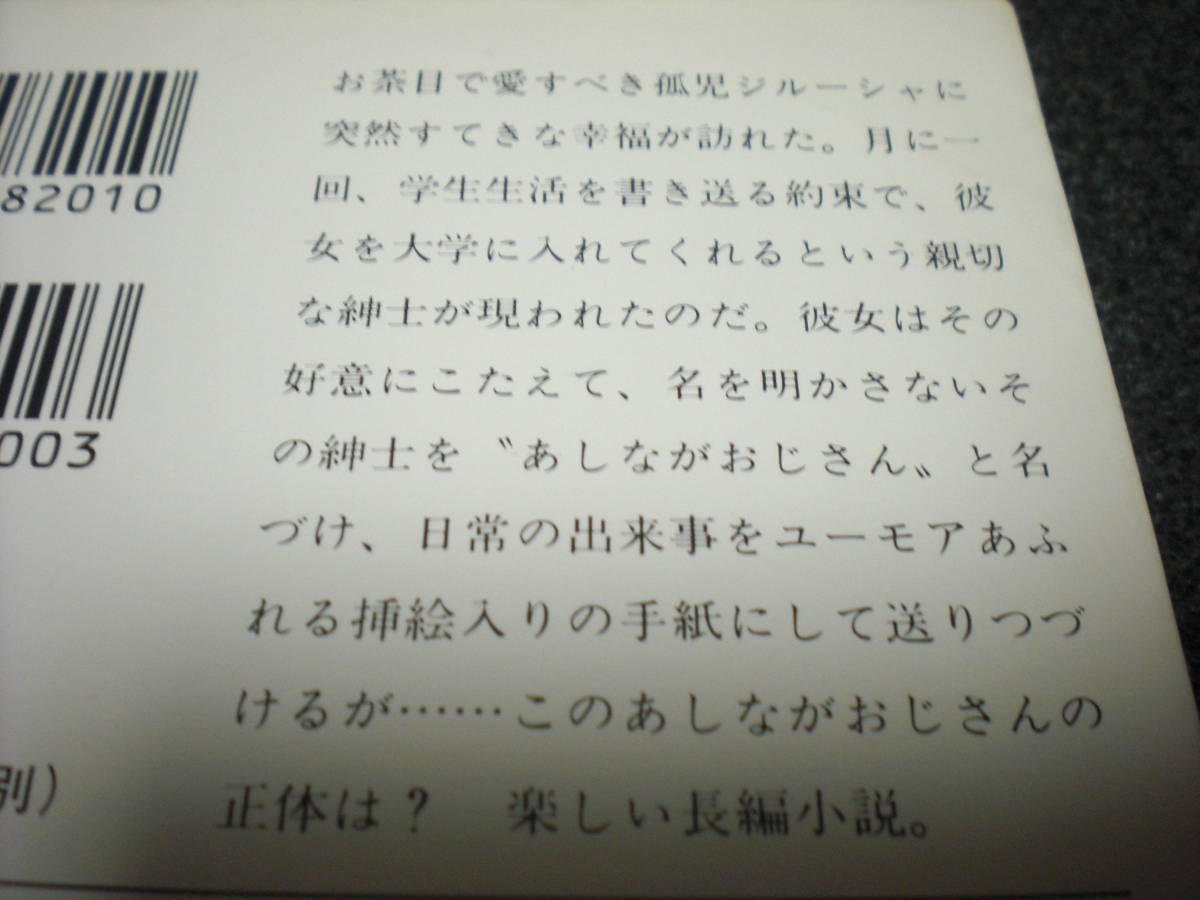 お茶目で愛すべき孤児ジルーシャに
突然すてきな幸福が訪れた。月に一
回、学生生活を書き送る約束で、彼
女を大学に入れてくれるという親切
な紳士が現われたのだ。彼女はその
好意にこたえて、名を明かさないそ
の紳士を〝あしながおじさん〟と名
づけ、日常の出来事をユーモアあふ
れる挿絵入りの手紙にして送りつづ
けるが……このあしながおじさんの
正体は？　楽しい長編小説。
82010
003
別）